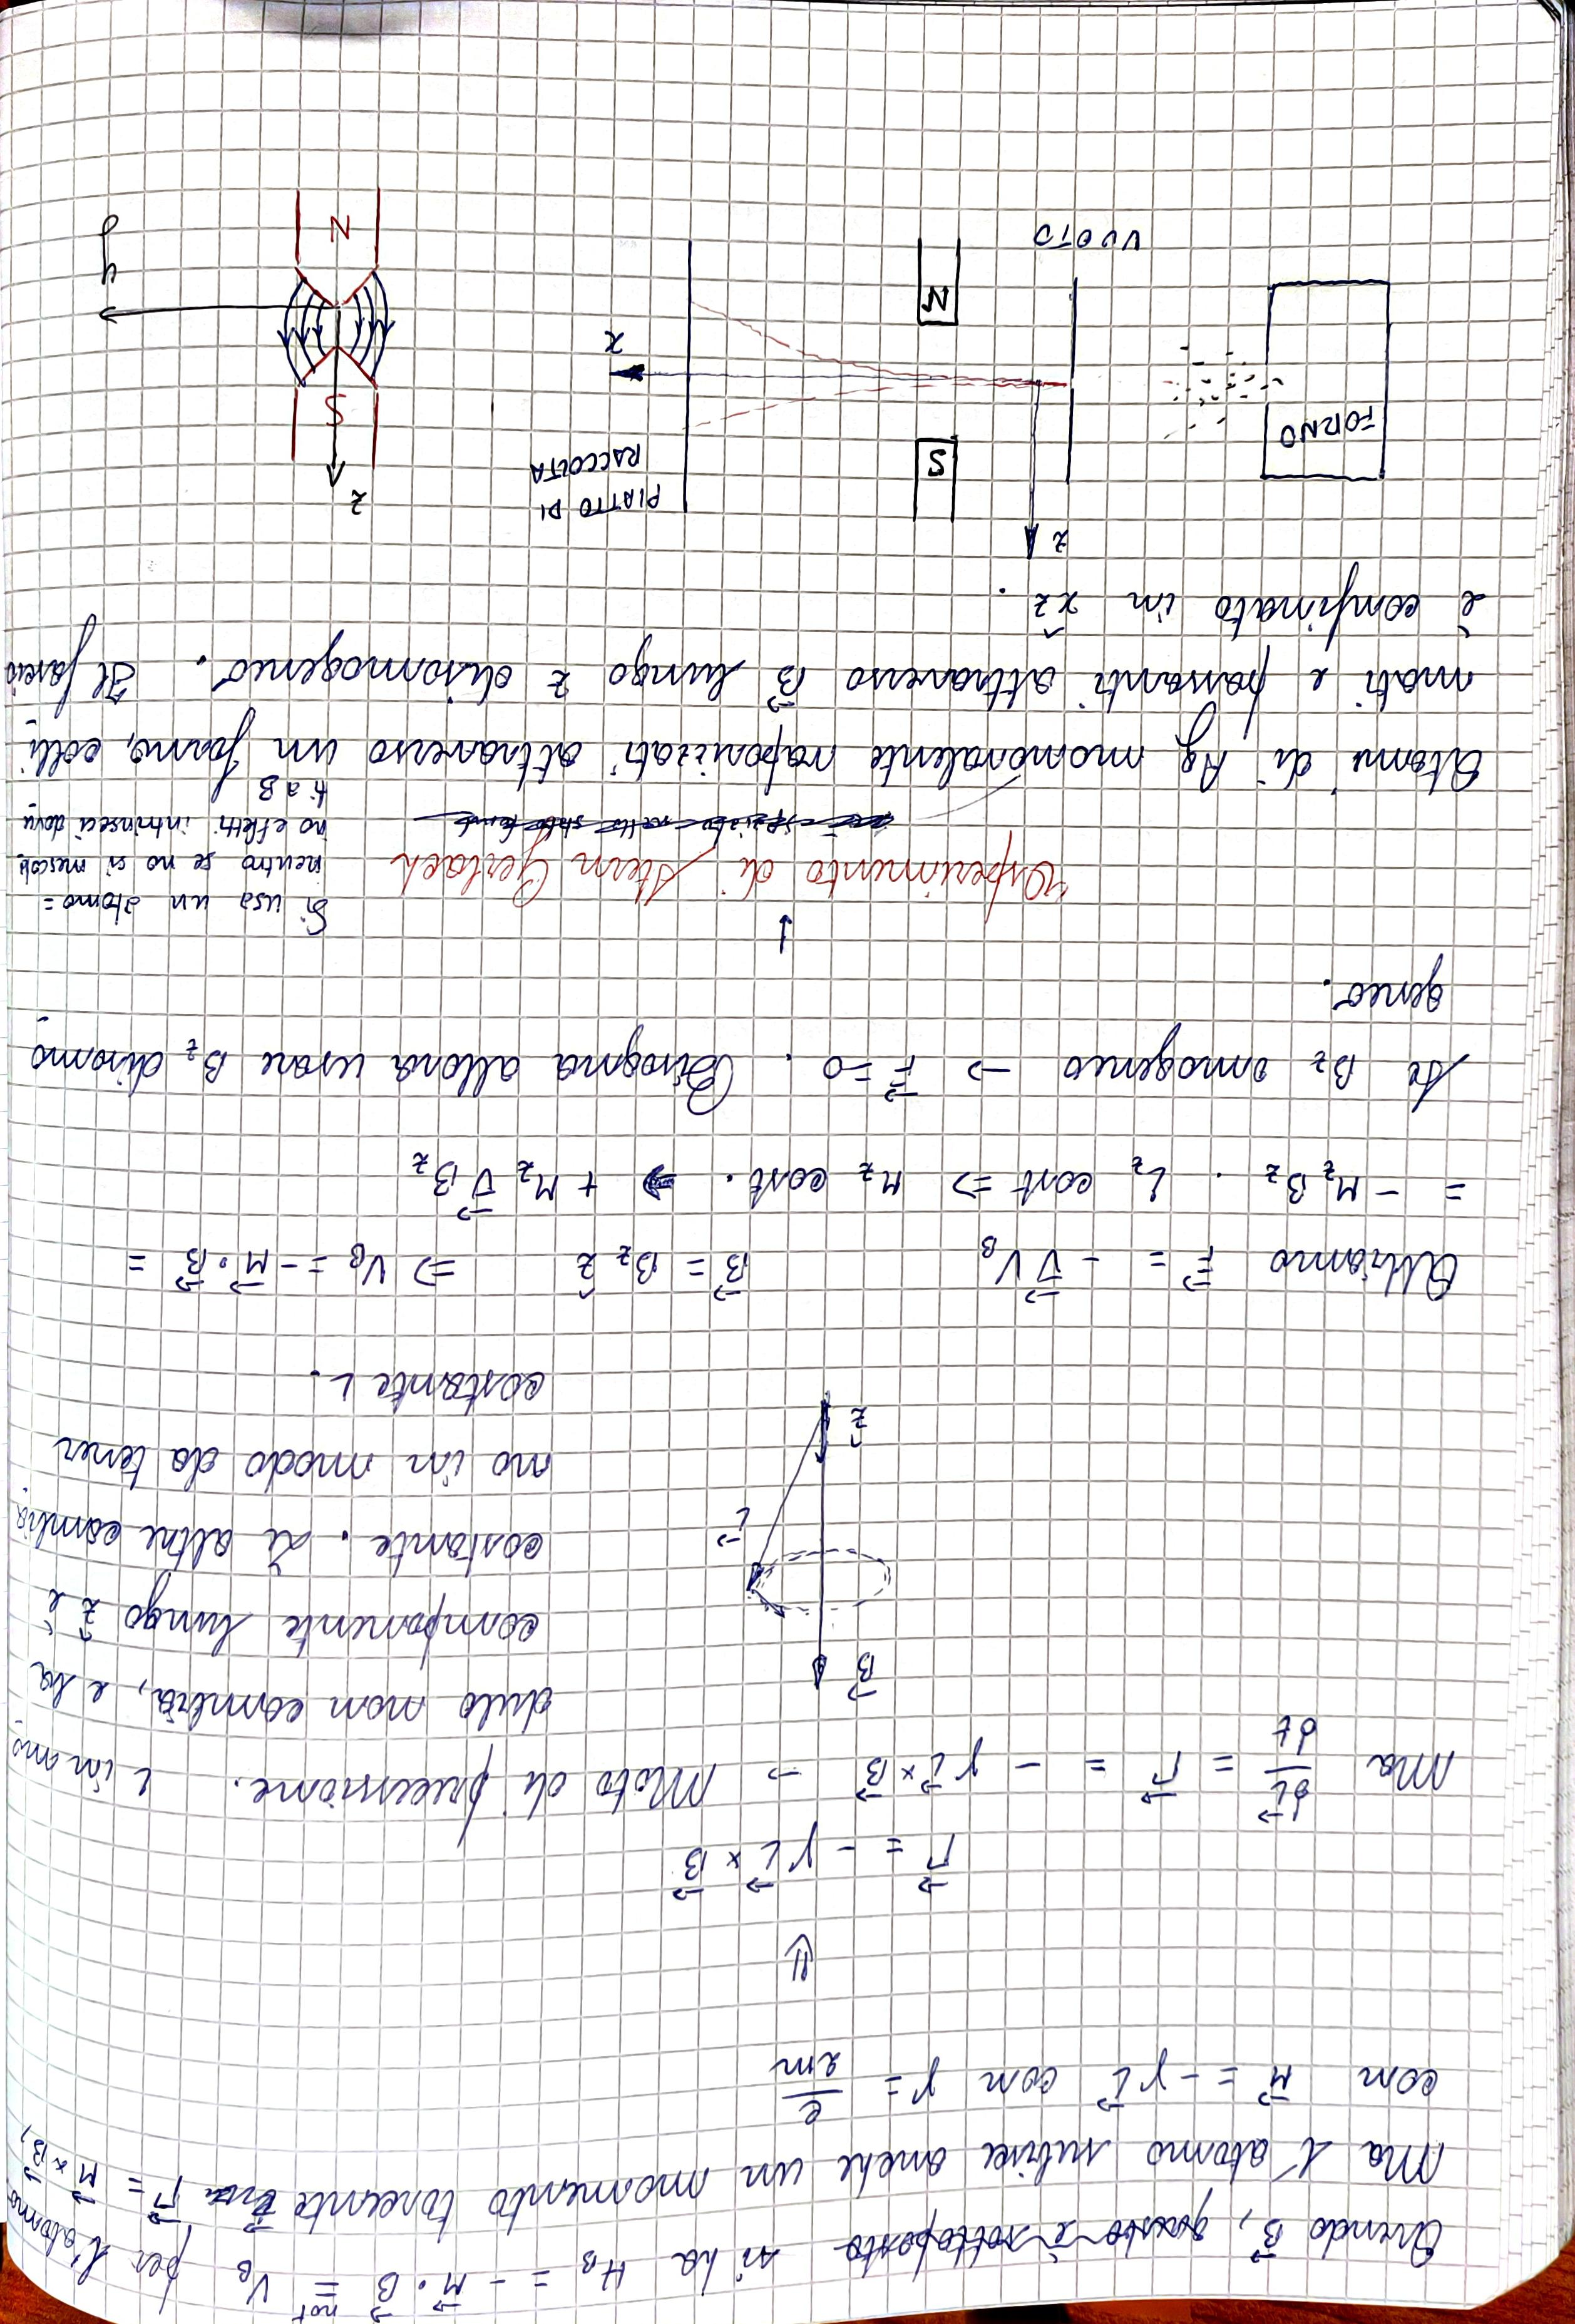 Avendo B⃗, questo è sottoposto si ha H_B = - M⃗ · B⃗ not= V_B per l'atomo
Ma l'atomo subisce anche un momento torcente Γ⃗ = M⃗ × B⃗,
con M⃗ = - γ L⃗ con γ = e/2m
⇓
Γ⃗ = - γ L⃗ × B⃗
Ma dL⃗/dt = Γ⃗ = - γ L⃗ × B⃗ → Moto di precessione. L in mo-
dulo non cambia, e la
componente lungo ẑ è
costante. Le altre cambia-
no in modo da tener
costante L.
B⃗
L⃗
ẑ
Abbiamo F⃗ = - ∇⃗ V_B B⃗ = B_z ẑ ⇒ V_B = - M⃗ · B⃗ =
= - M_z B_z . L_z cost ⇒ M_z cost. ⇒ + M_z ∇⃗ B_z
Se B_z omogeneo → F⃗ = 0 . Bisogna allora usare B_z disomo-
geneo.
↓
Esperimento di Stern Gerlach
Si usa un atomo =
neutro se no si mescola
no effetti intrinseci dovu-
ti a B
Atomi di Ag monovalente vaporizzati attraverso un forno, colli-
mati e passanti attraverso B⃗ lungo z disomogeneo. Il fascio
è confinato in x̂z .
z
S
PIATTO DI
RACCOLTA
FORNO
x
N
VUOTO
z
S
y
N